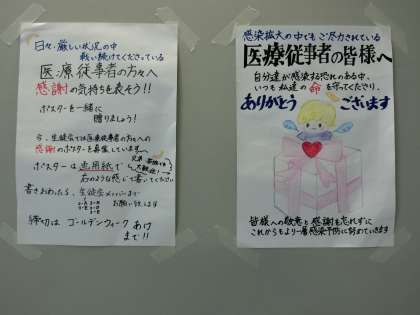 日々、厳しい状況の中
戦い続けてくださっている
医療従事者の方々へ
感謝の気持ちを表そう!!
ポスターを一緒に
贈りましょう!
今、生徒会では医療従事者の方々への
感謝のポスターを募集しています。
ポスターは画用紙で
右のような感じで書いてください
書きおわったら、生徒会メンバーまで
お願いします
締切は ゴールデンウィーク あけ
まで!!
感染拡大の中でもご尽力されている
医療従事者の皆様へ
自分達が感染する恐れのある中、
いつも私達の命を守ってくださり、
ありがとう ございます
皆様への敬意と感謝を忘れずに
これからもより一層感染予防に努めていきます